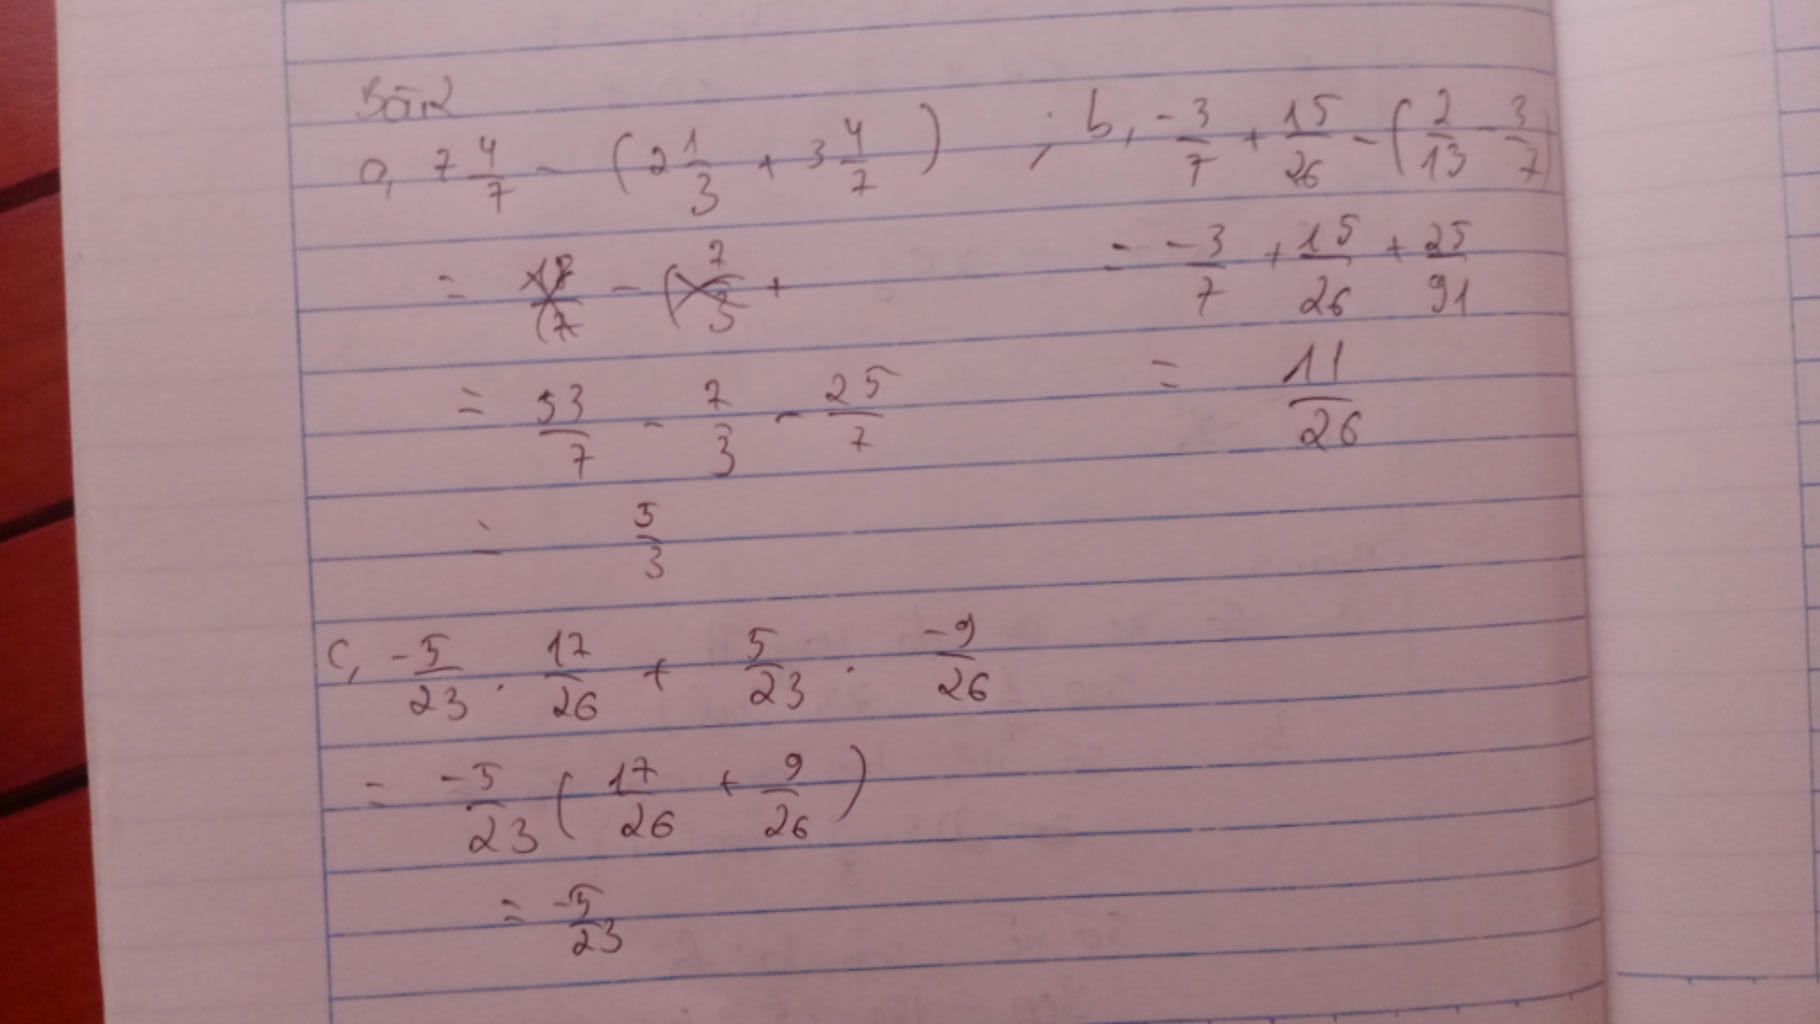 Bài 2
a, 7 4/7 - (2 1/3 + 3 4/7) ; b, -3/7 + 15/26 - (2/13 - 3/7)
= 53/7 - 7/3 - 25/7
= 5/3
= -3/7 + 15/26 + 25/91
= 11/26
c, -5/23 . 17/26 + 5/23 . -9/26
= -5/23 (17/26 + 9/26)
= -5/23